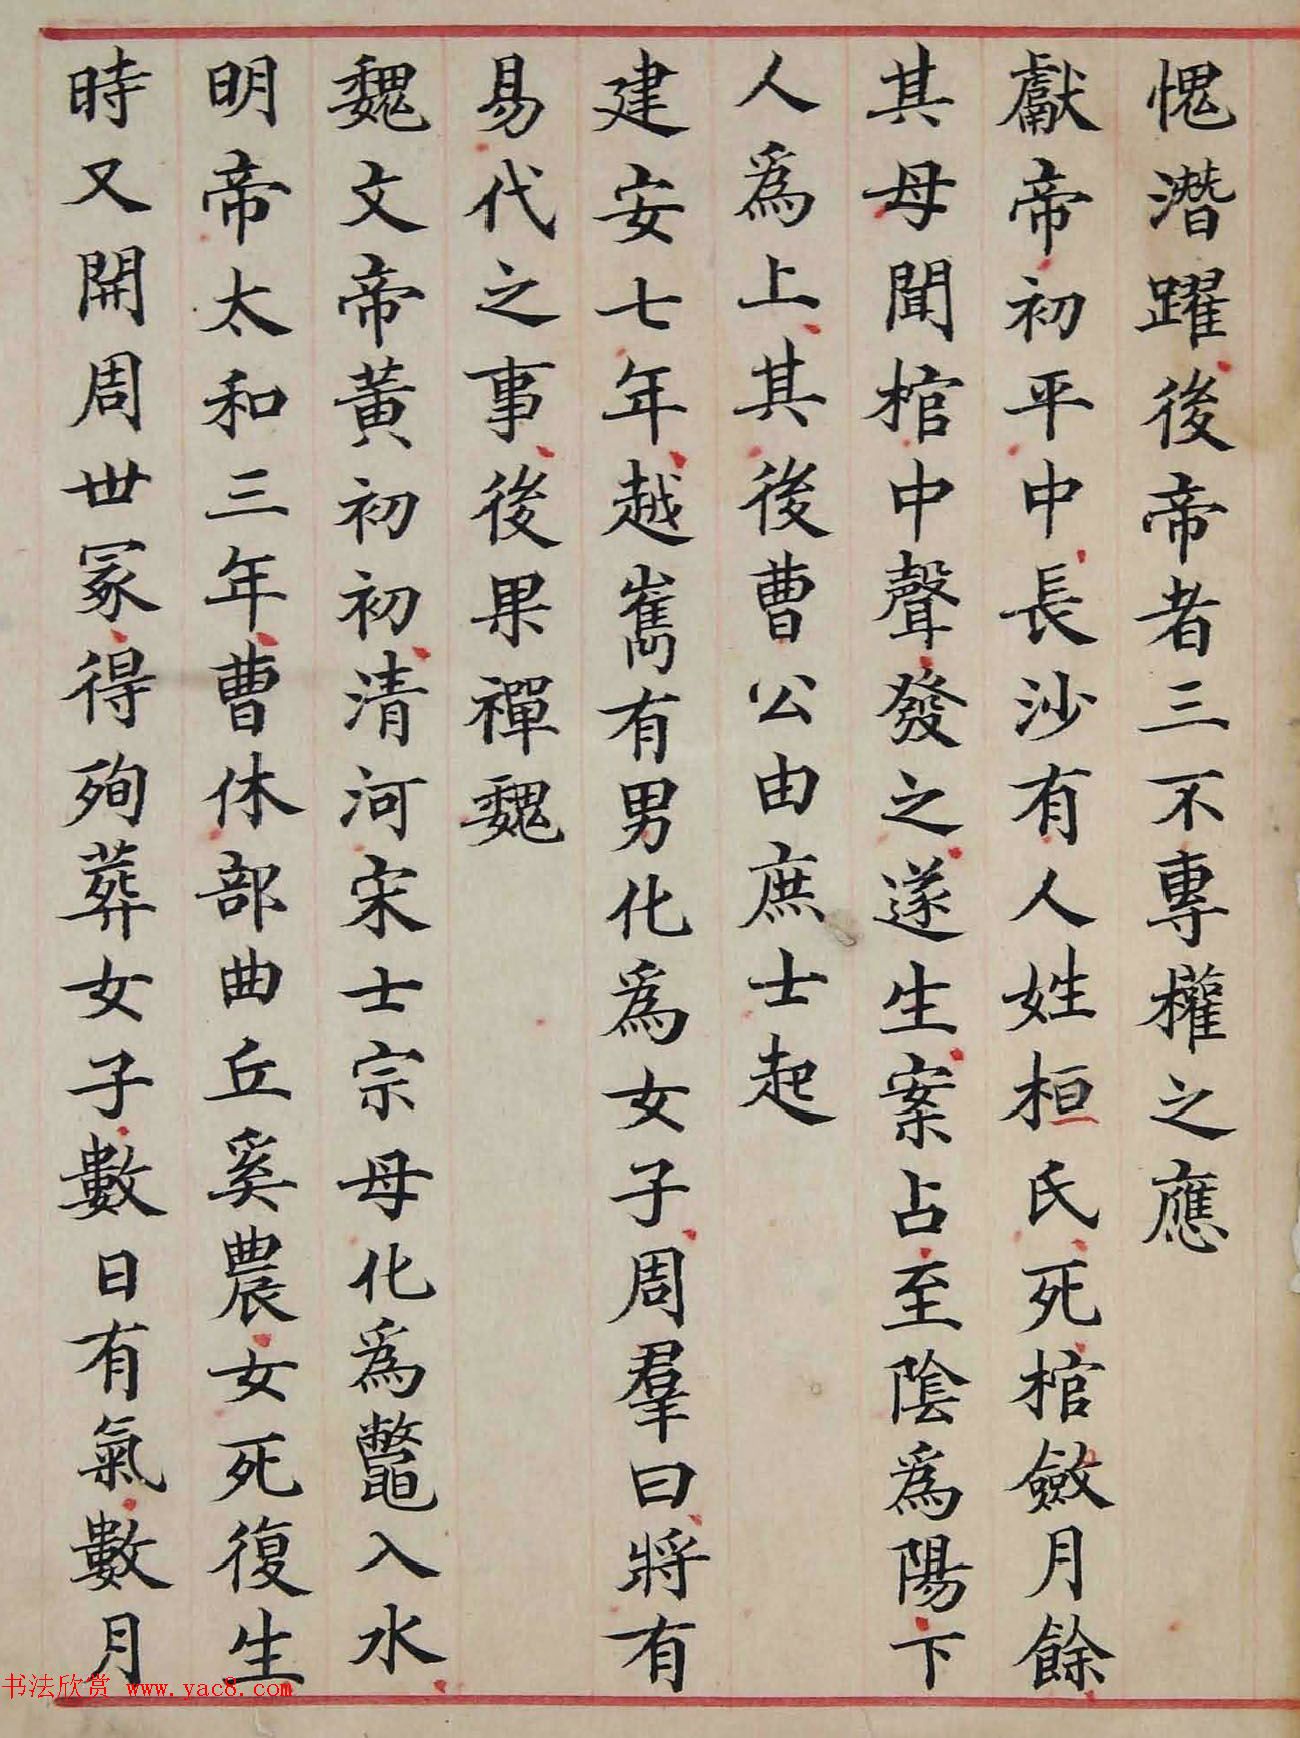 愧潛躍後帝者三不專權之應
獻帝初平中長沙有人姓桓氏死棺斂月餘
其母聞棺中聲發之遂生案占至陰為陽下
人為上其後曹公由庶士起
建安七年越嶲有男化為女子周羣曰將有
易代之事後果禪魏
魏文帝黃初初清河宋士宗母化為鼈入水
明帝太和三年曹休部曲丘奚農女死復生
時又開周世冢得殉葬女子數日有氣數月
书法欣赏 www.yac8.com